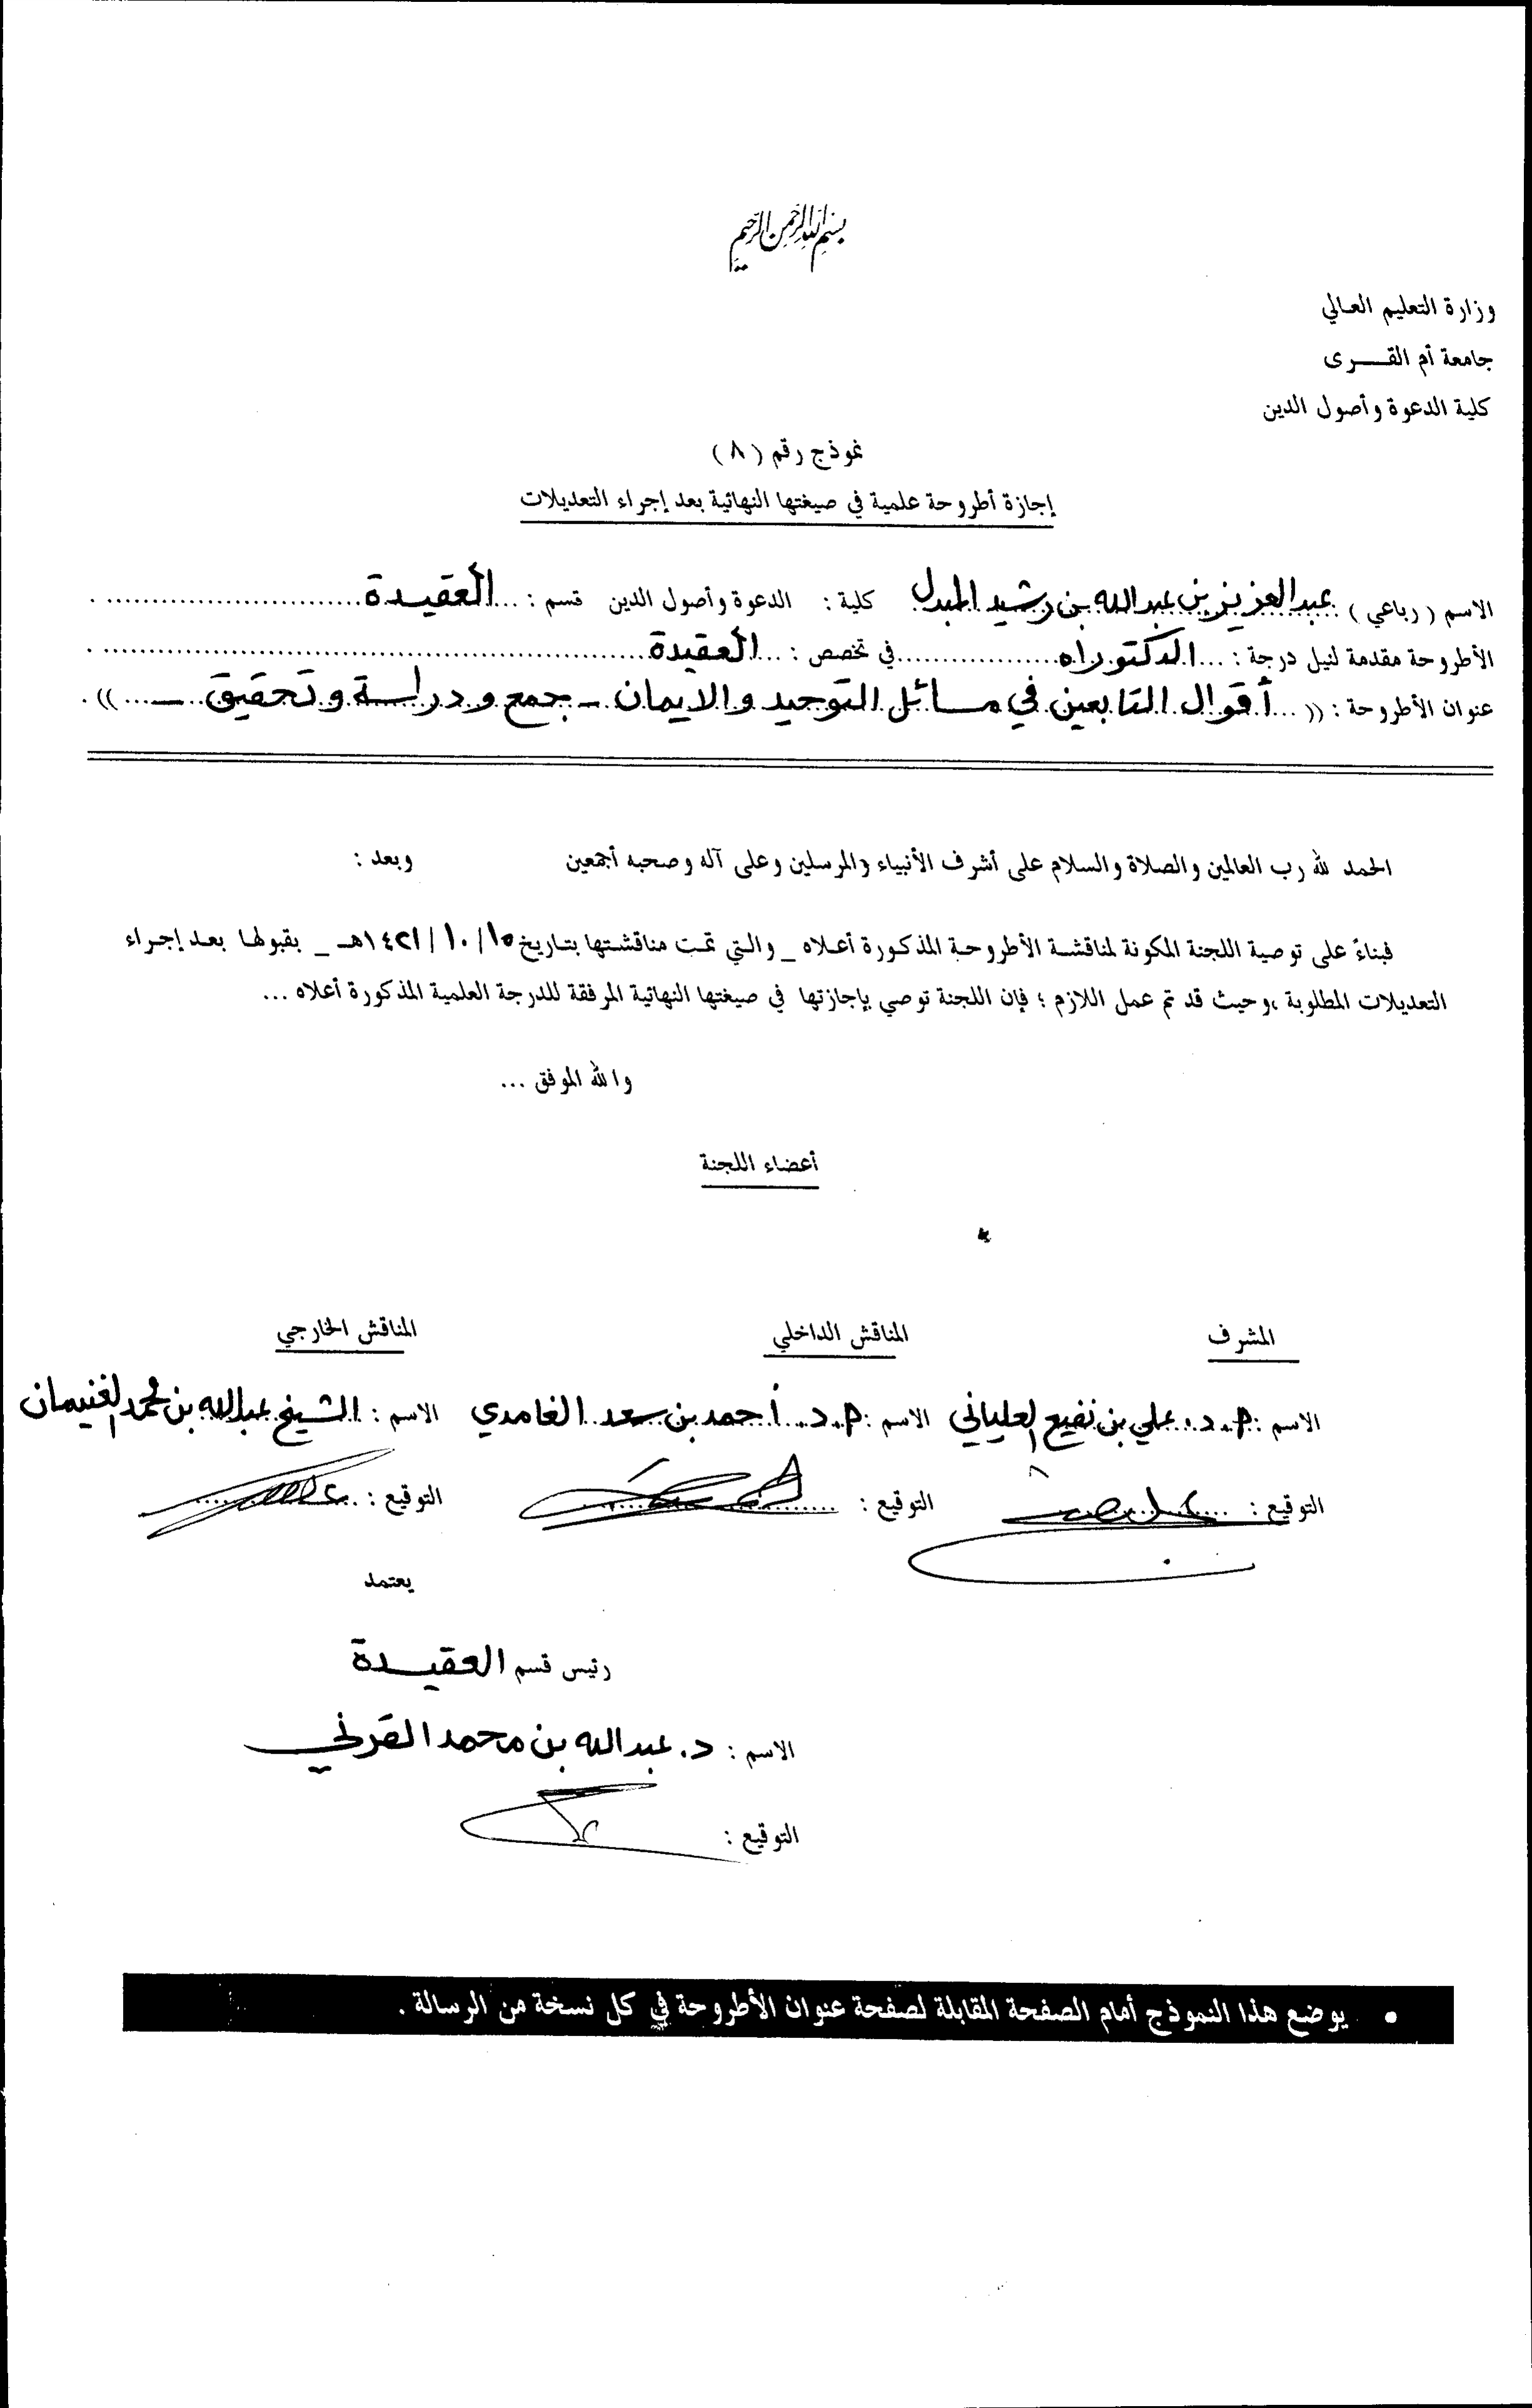 بسم الله الرحمن الرحيم
وزارة التعليم العالي
جامعة أم القــــرى
كلية الدعوة وأصول الدين
نموذج رقم ( ٨ )
إجازة أطروحة علمية في صيغتها النهائية بعد إجراء التعديلات
الاسم ( رباعي ) عبدالعزيز بن عبدالله بن رشيد المبدل كلية : الدعوة وأصول الدين قسم : ... العقيدة ...
الأطروحة مقدمة لنيل درجة : ... الدكتوراه ... في تخصص : ... العقيدة ...
عنوان الأطروحة : (( ... أقوال التابعين في مسائل التوحيد والايمان - جمع ودراسة وتحقيق - ... )) .
الحمد لله رب العالمين والصلاة والسلام على أشرف الأنبياء والمرسلين وعلى آله وصحبه أجمعين وبعد :
فبناءً على توصية اللجنة المكونة لمناقشة الأطروحة المذكورة أعلاه _ والتي تمت مناقشتها بتاريخ ١٥ / ١٠ / ١٤٢١هـ _ بقبولها بعد إجراء
التعديلات المطلوبة ،وحيث قد تم عمل اللازم ؛ فإن اللجنة توصي بإجازتها في صيغتها النهائية المرفقة للدرجة العلمية المذكورة أعلاه ...
والله الموفق ...
أعضاء اللجنة
المشرف المناقش الداخلي المناقش الخارجي
الاسم : د. علي بن نفيع العلياني الاسم : د. أحمد بن سعد الغامدي الاسم : الشيخ عبدالله بن محمد الغنيمان
التوقيع : التوقيع : التوقيع :
يعتمد
رئيس قسم العقيدة
الاسم : د. عبدالله بن محمد القرني
التوقيع :
• يوضع هذا النموذج أمام الصفحة المقابلة لصفحة عنوان الأطروحة في كل نسخة من الرسالة .